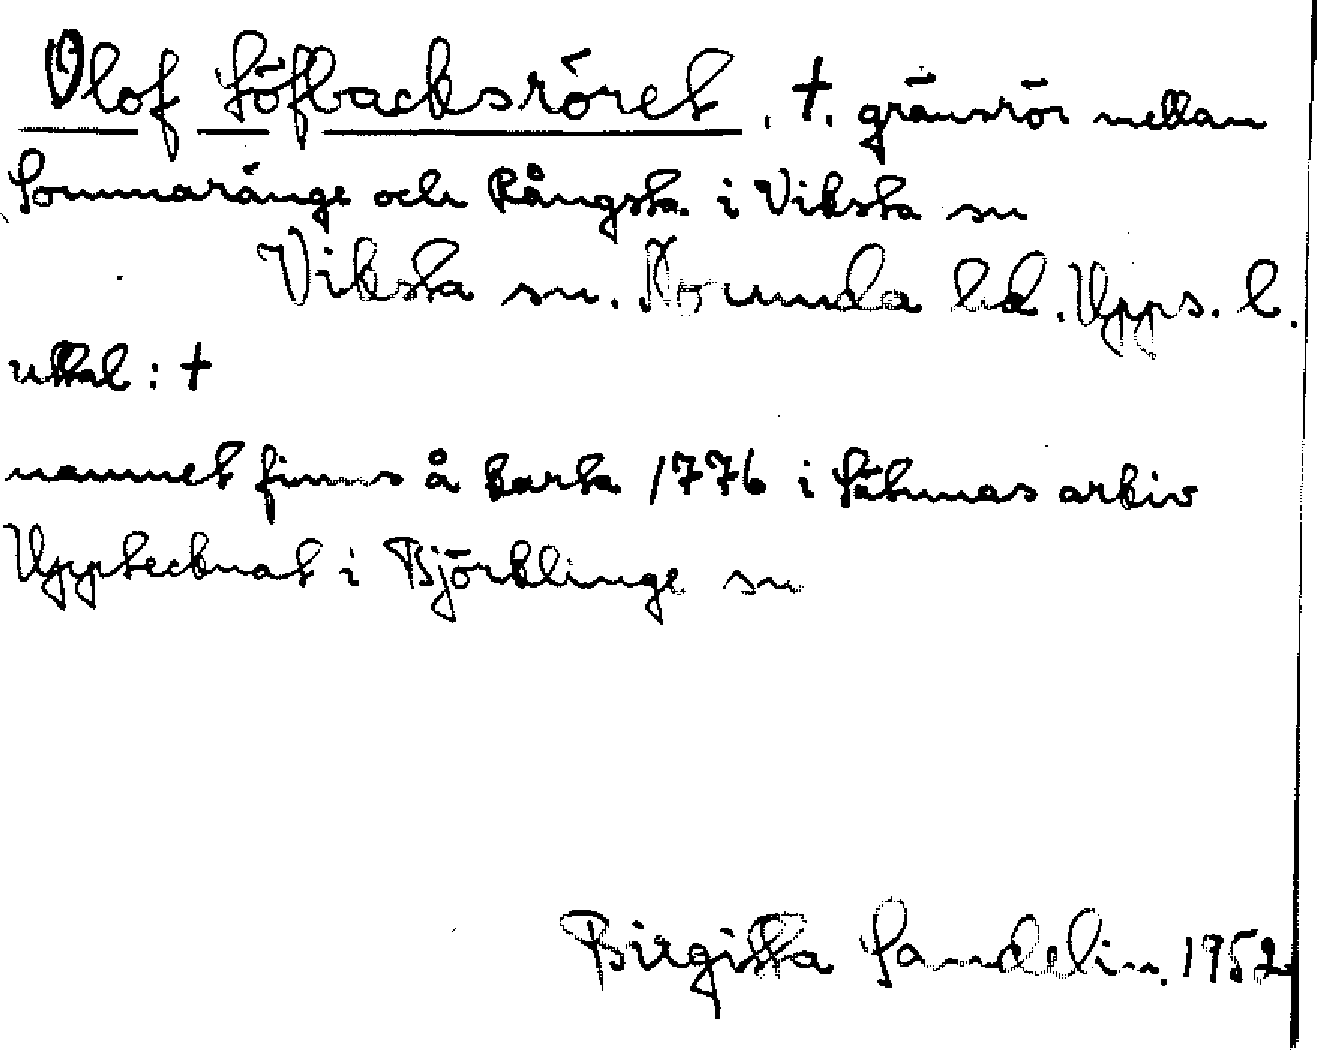 Olof Löfbacksröret. †. gränsrör mellan
Sommaränge och Rångsta i Viksta sn
Viksta sn. Norunda hd. Upps. l.
uttal: †
namnet finns å karta 1776 i Sätunas arkiv
Upptecknat i Björklinge sn
Birgitta Sandelin. 1952